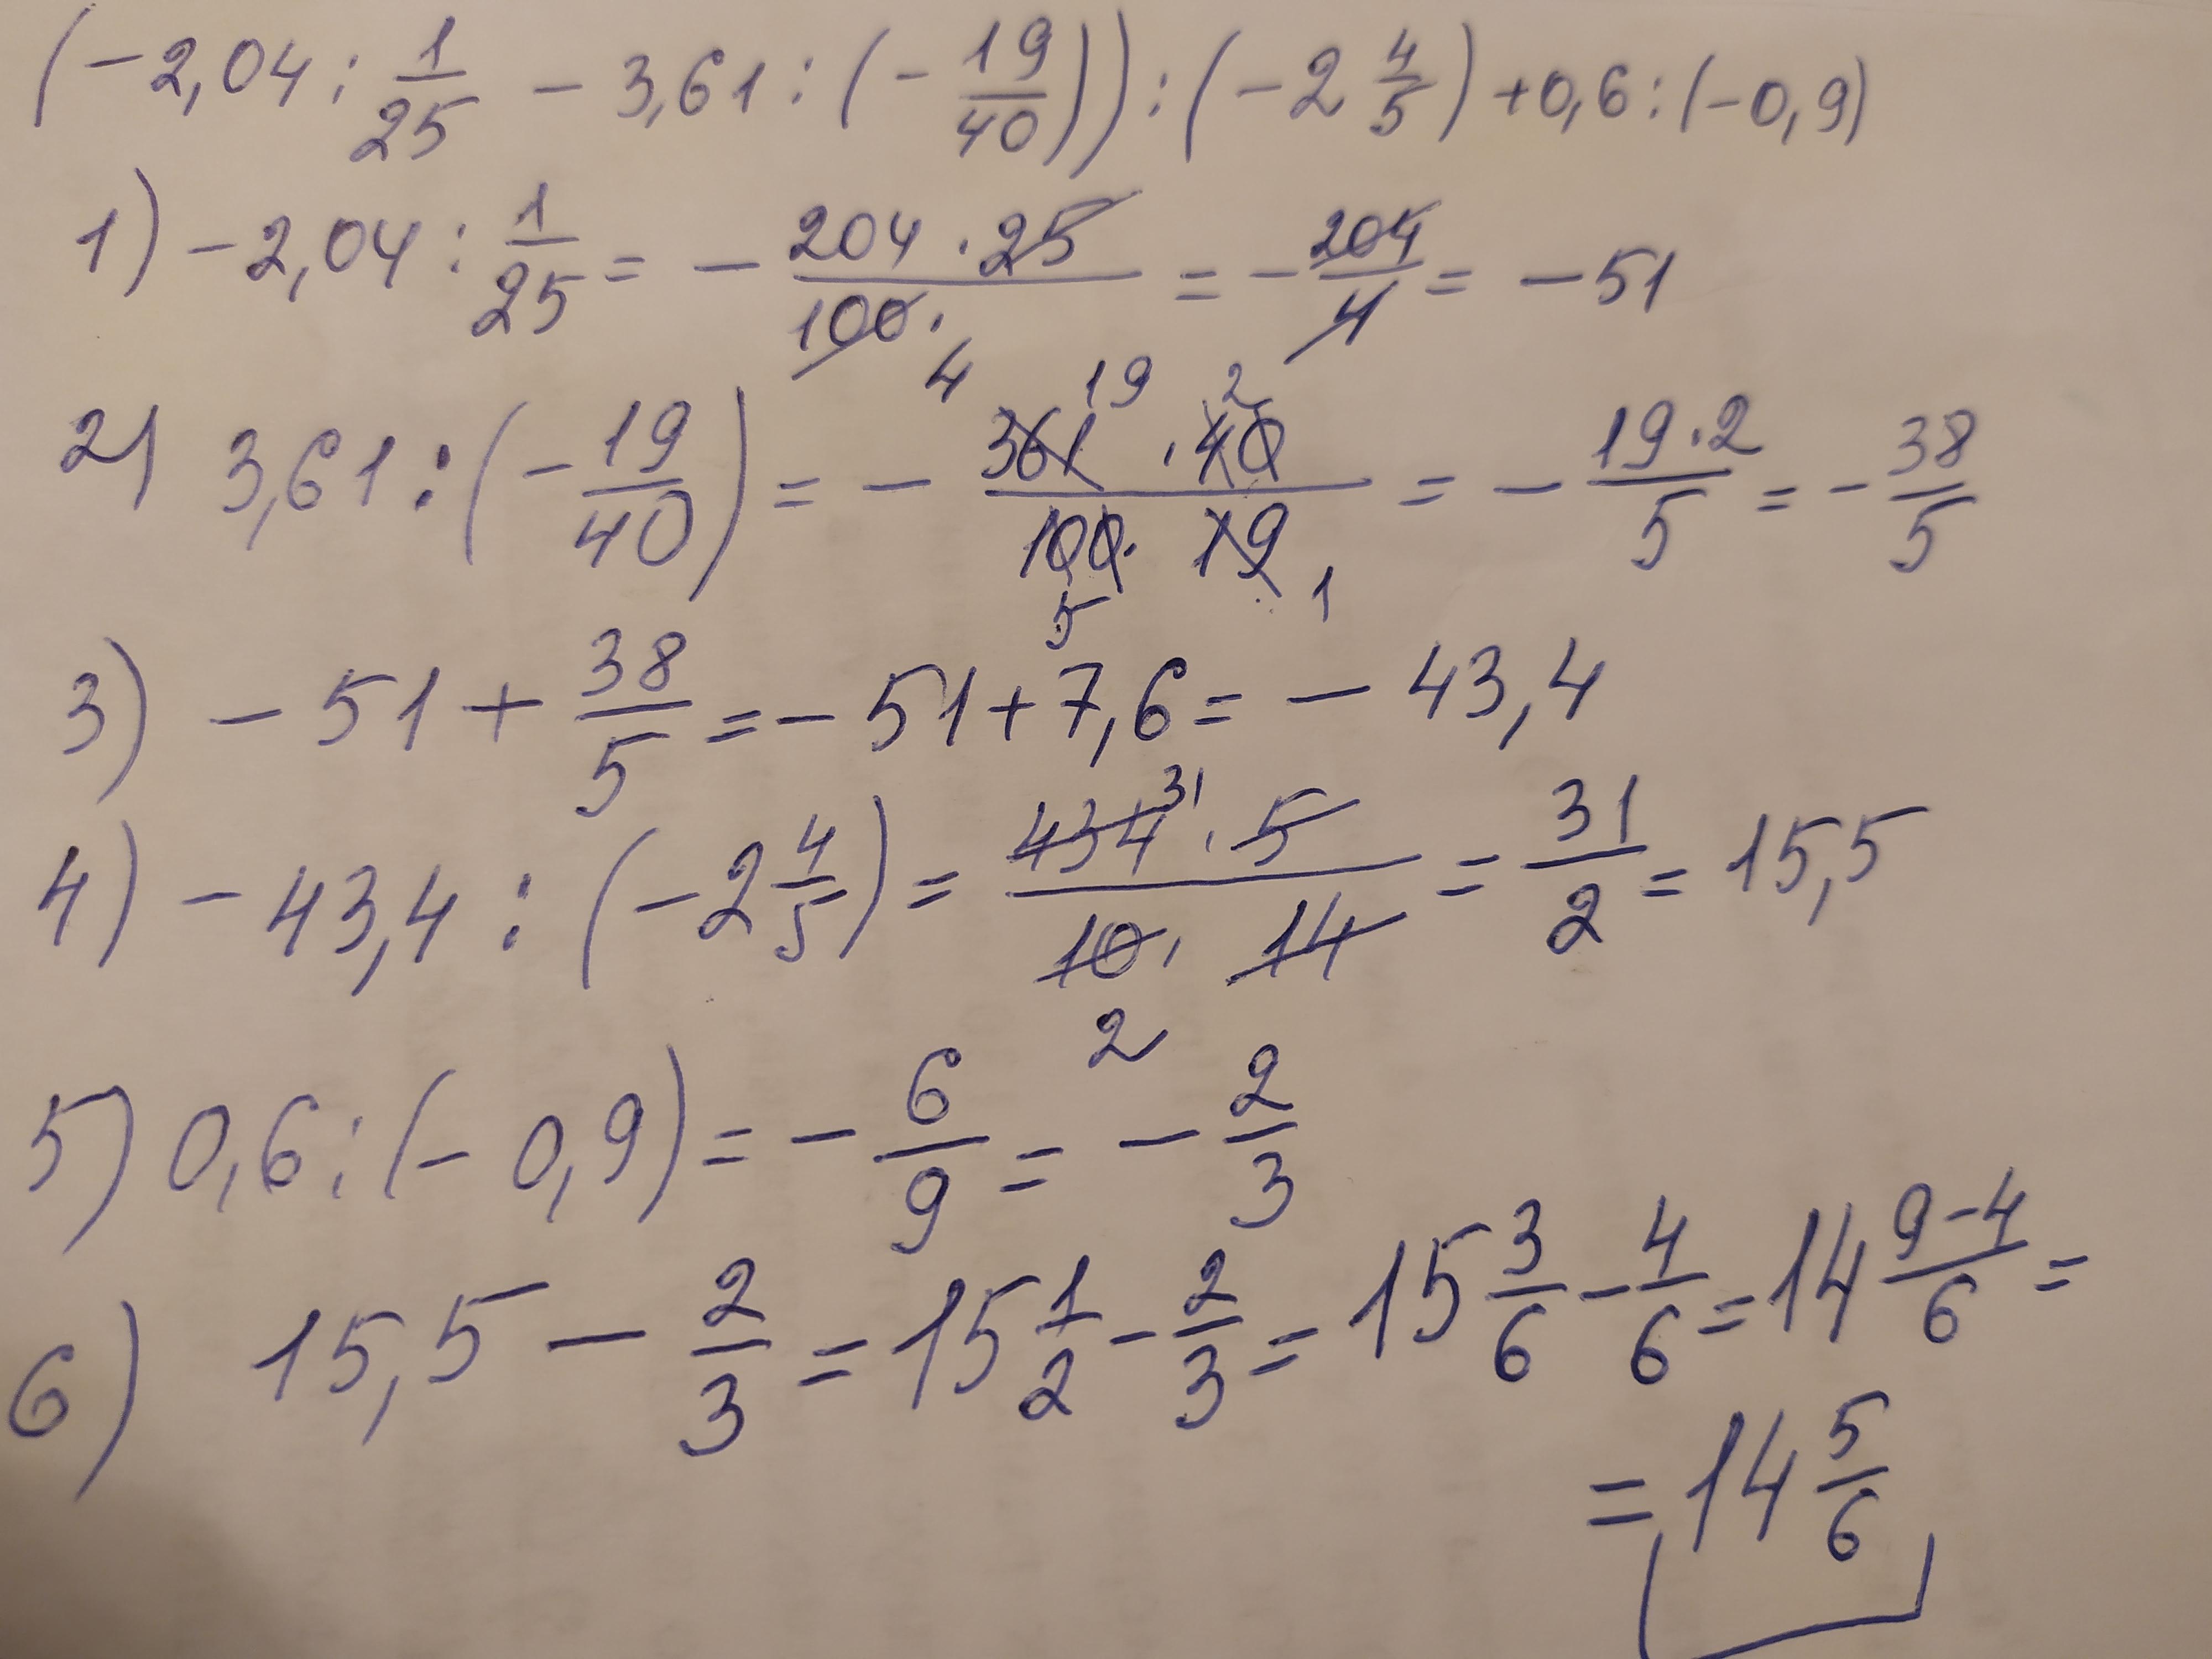 (-2,04 : 1/25 - 3,61 : (-19/40)) : (-2 4/5) + 0,6 : (-0,9)
1) -2,04 : 1/25 = - 204 · 25 / 100 · 4 = - 204/4 = -51
2) 3,61 : (-19/40) = - 361 19 · 40 2 / 100 5 · 19 1 = - 19·2/5 = - 38/5
3) -51 + 38/5 = -51 + 7,6 = -43,4
4) -43,4 : (-2 4/5) = 434 31 · 5 / 10 2 · 14 = 31/2 = 15,5
5) 0,6 : (-0,9) = - 6/9 = - 2/3
6) 15,5 - 2/3 = 15 1/2 - 2/3 = 15 3/6 - 4/6 = 14 9-4/6 =
= 14 5/6